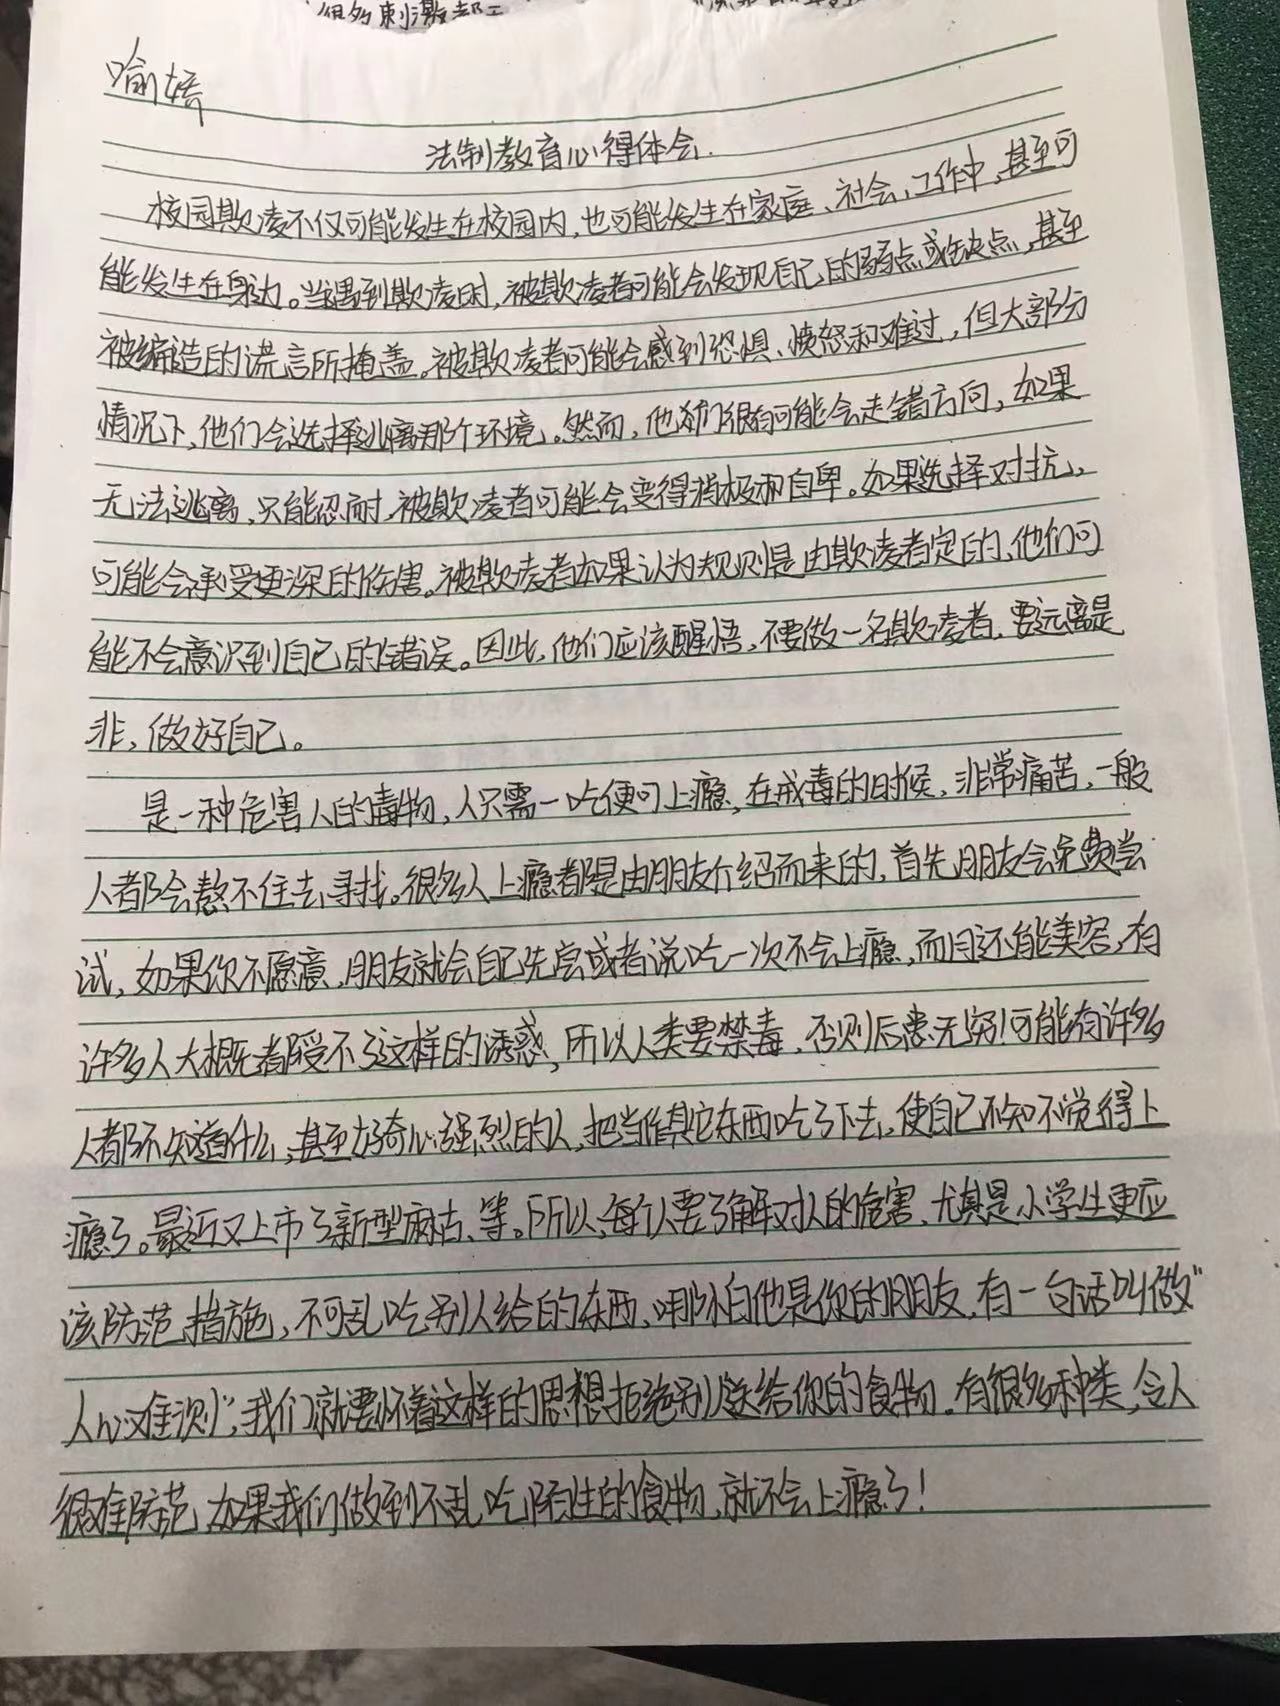 很多刺激都
喻婧
法制教育心得体会.
校园欺凌不仅可能发生在校园内,也可能发生在家庭、社会、工作中,甚至可
能发生在身边。当遇到欺凌时,被欺凌者可能会发现自己的弱点或缺点,甚至
被编造的谎言所掩盖。被欺凌者可能会感到恐惧、愤怒和难过,但大部分
情况下,他们会选择逃离那个环境。然而,他们很有可能会走错方向,如果
无法逃离,只能忍耐,被欺凌者可能会变得消极和自卑。如果选择对抗,
可能会承受更深的伤害。被欺凌者如果认为规则是由欺凌者定的,他们可
能不会意识到自己的错误。因此,他们应该醒悟,不要做一名欺凌者,要远离是
非,做好自己。
是一种危害人的毒物,人只需一吃便可上瘾,在戒毒的时候,非常痛苦,一般
人都会熬不住去寻找。很多人上瘾都是由朋友介绍而来的,首先朋友会免费尝
试,如果你不愿意,朋友就会自己先尝或者说吃一次不会上瘾,而且还能美容,有
许多人大概都受不了这样的诱惑,所以人类要禁毒,否则后患无穷!可能有许多
人都不知道什么,甚至好奇心强烈的人,把当作其它东西吃了下去,使自己不知不觉得上
瘾了。最近又上市了新型麻古、等。所以,每个人要了解对人的危害,尤其是小学生更应
该防范措施,不可乱吃别人给的东西,哪怕他是你的朋友,有一句话叫做"
人心难测",我们就要怀着这样的思想拒绝别人送给你的食物。有很多种类,令人
很难防范,如果我们做到不乱吃陌生的食物,就不会上瘾了!